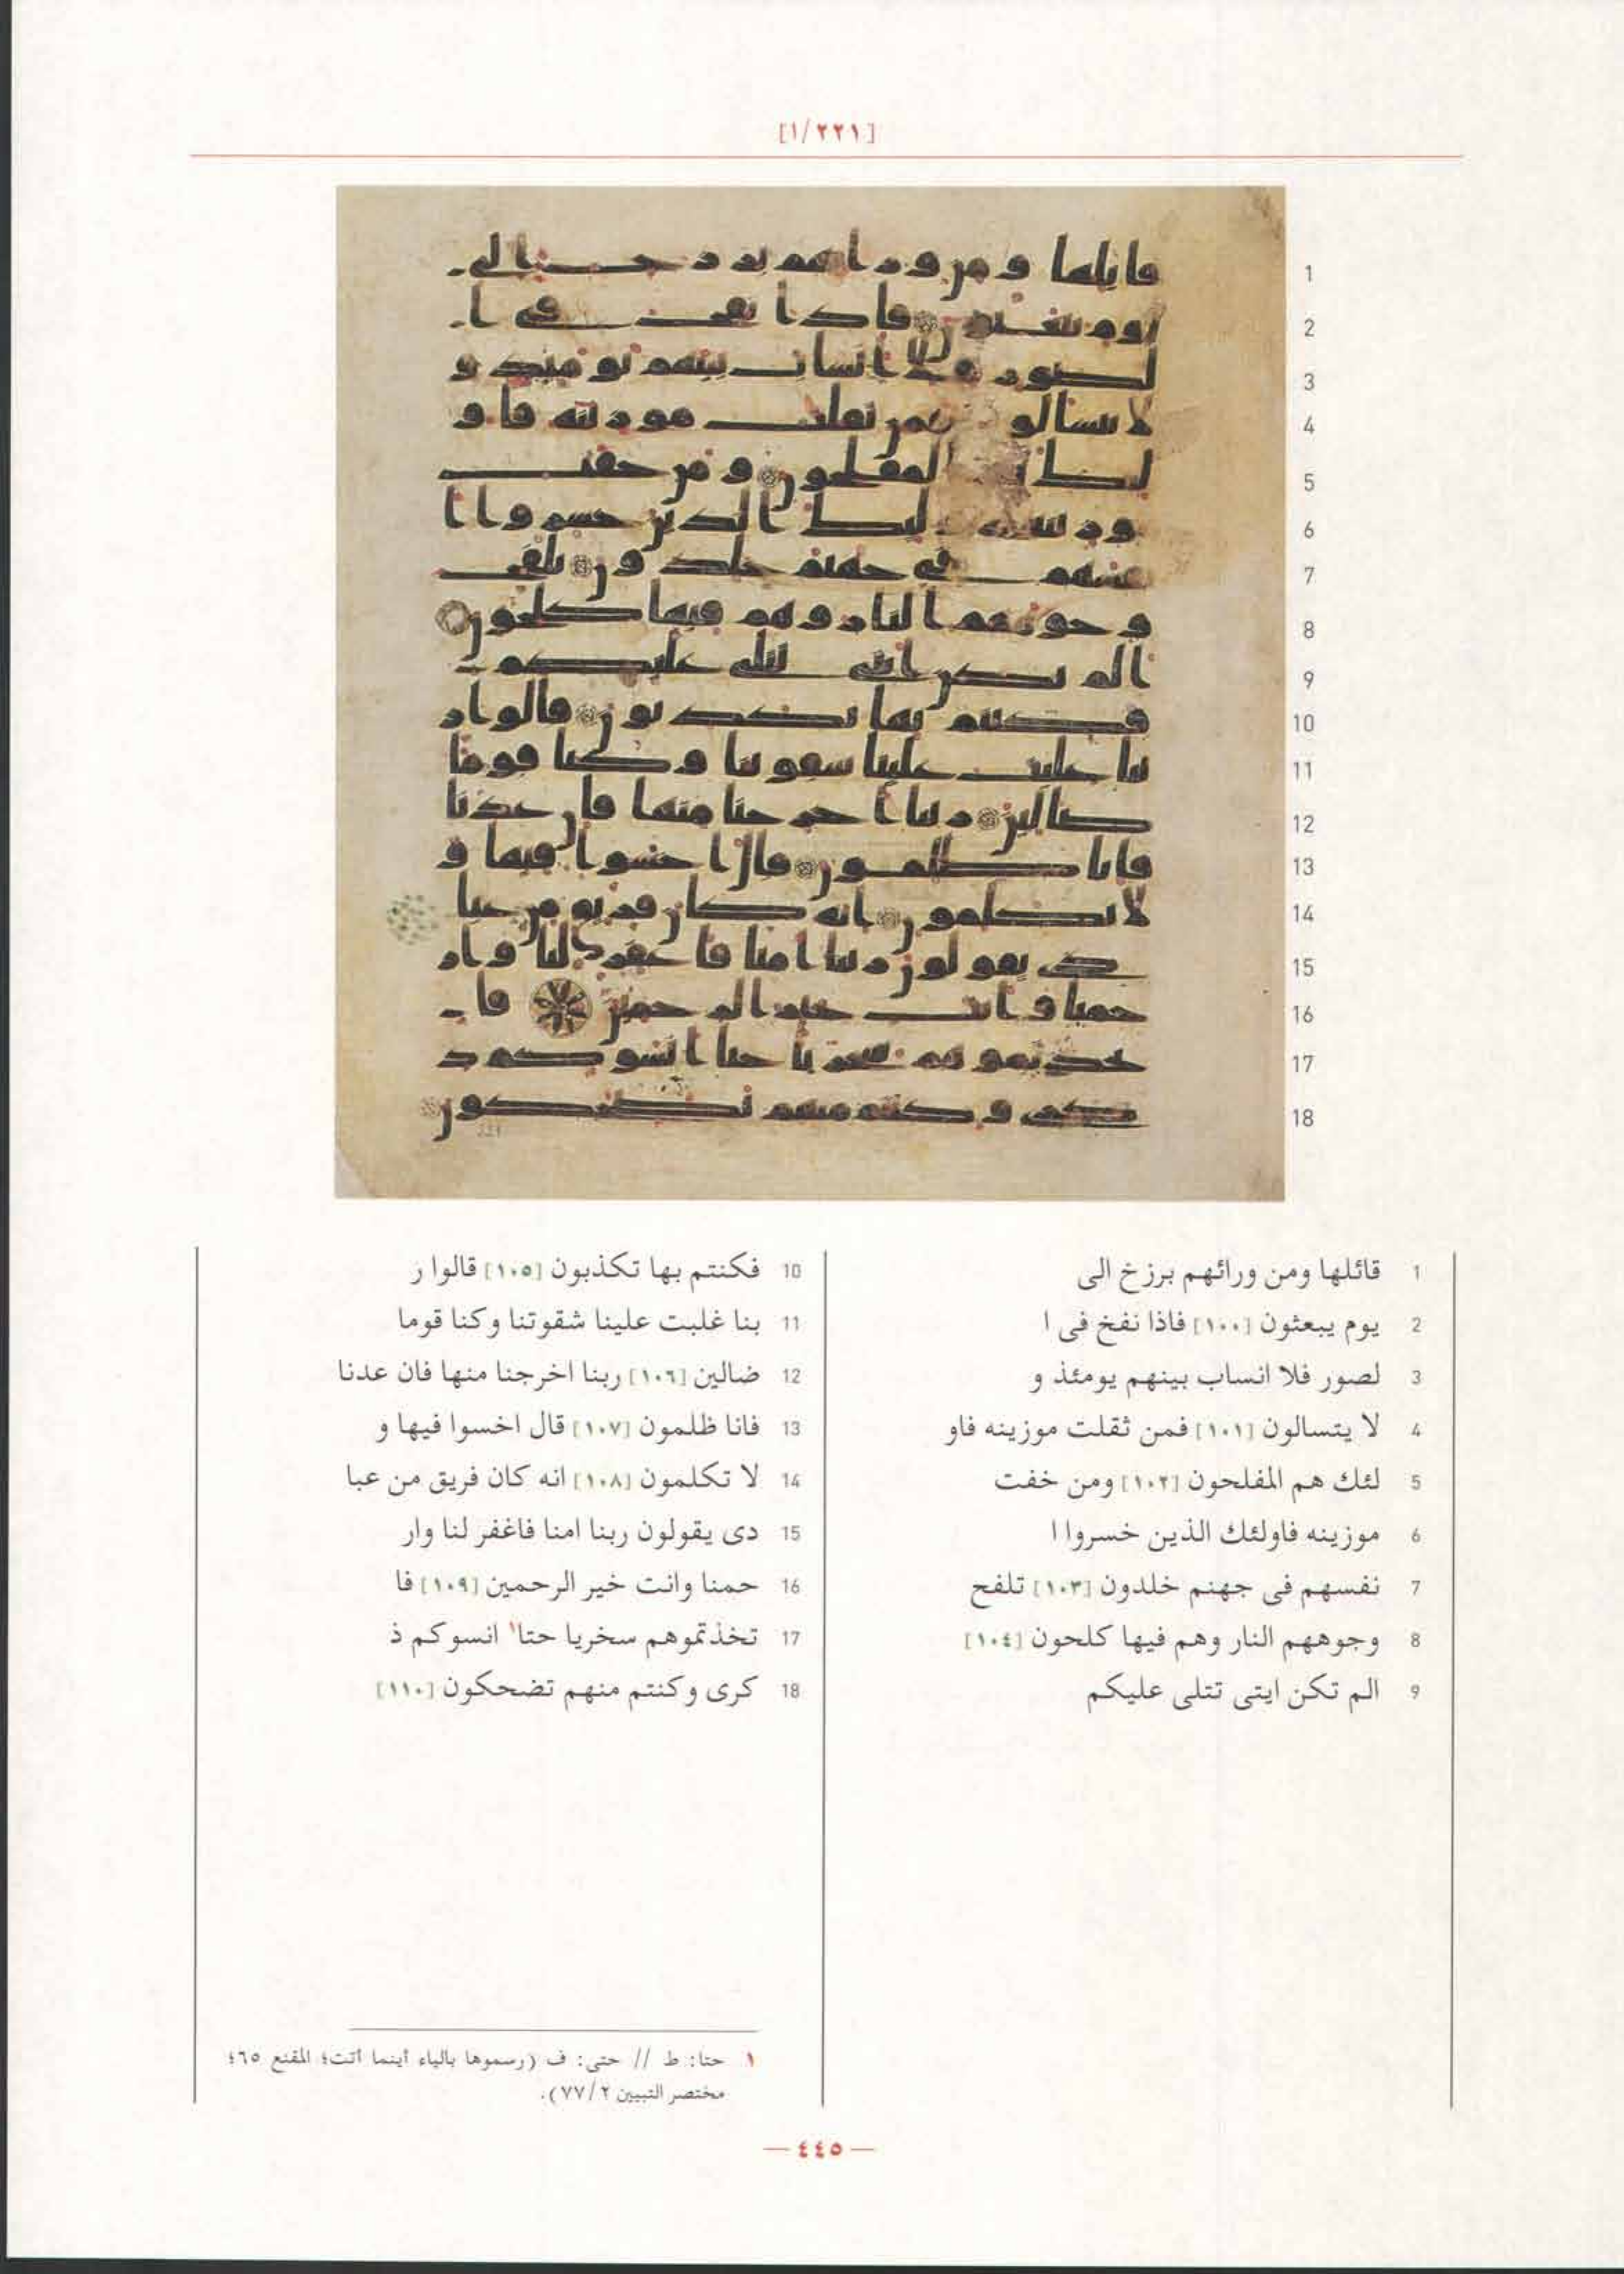 [١/٢٢١]
1 قائلها ومن ورائهم برزخ الى
2 يوم يبعثون [١٠٠] فاذا نفخ فى ا
3 لصور فلا انساب بينهم يومئذ و
4 لا يتسالون [١٠١] فمن ثقلت موزينه فاو
5 لئك هم المفلحون [١٠٢] ومن خفت
6 موزينه فاولئك الذين خسروا ا
7 نفسهم فى جهنم خلدون [١٠٣] تلفح
8 وجوههم النار وهم فيها كلحون [١٠٤]
9 الم تكن ايتى تتلى عليكم
10 فكنتم بها تكذبون [١٠٥] قالوا ر
11 بنا غلبت علينا شقوتنا وكنا قوما
12 ضالين [١٠٦] ربنا اخرجنا منها فان عدنا
13 فانا ظلمون [١٠٧] قال اخسوا فيها و
14 لا تكلمون [١٠٨] انه كان فريق من عبا
15 دى يقولون ربنا امنا فاغفر لنا وار
16 حمنا وانت خير الرحمين [١٠٩] فا
17 تخذتموهم سخريا حتا١ انسوكم ذ
18 كرى وكنتم منهم تضحكون [١١٠]
١ حتا: ط // حتى: ف (رسموها بالياء أينما أتت؛ المقنع ٦٥؛
مختصر التبيين ٧٧/٢).
— ٤٤٥ —